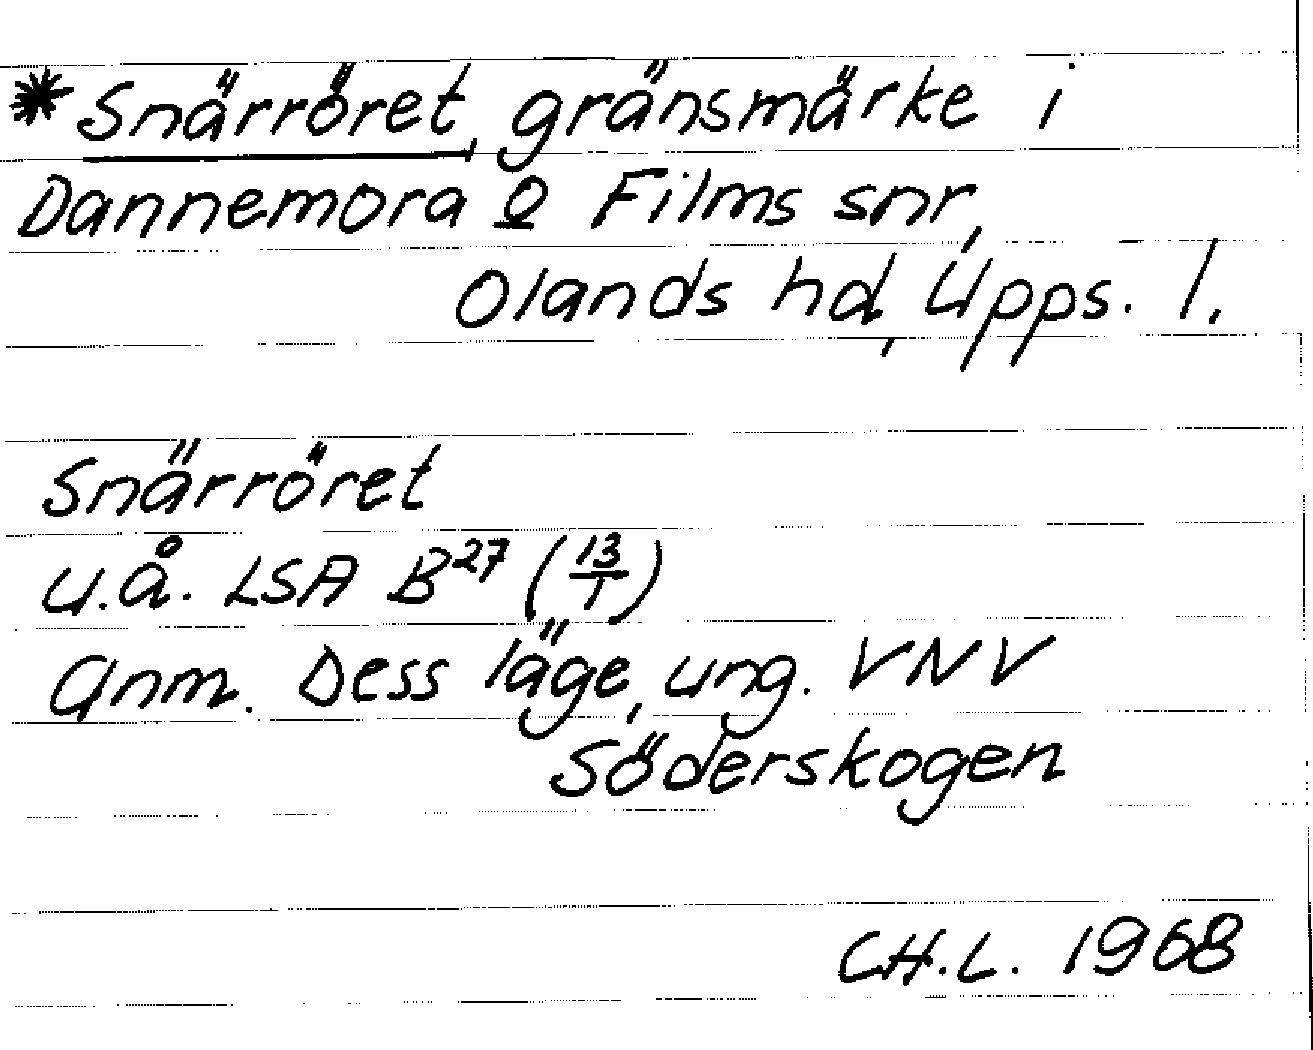 * Snärröret, gränsmärke i
Dannemora o Films snr,
Olands hd, Upps. l.
Snärröret
u.å. LSA B27 (13/1)
Anm. Dess läge, ung. VNV
Söderskogen
CH.L. 1968